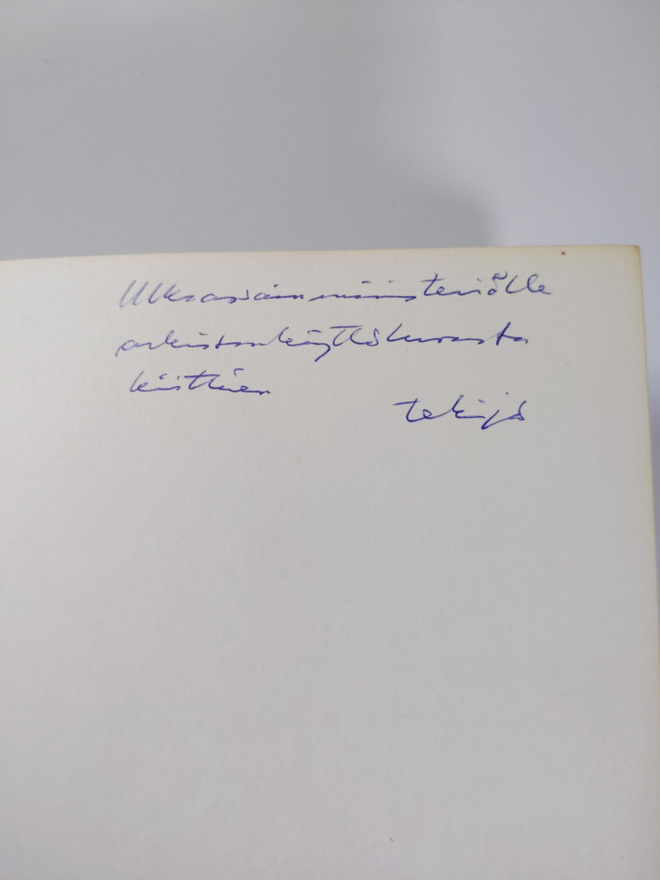 Ulkoasiainministeriölle
arkistonkäyttöluvasta
kiittäen
tekijä